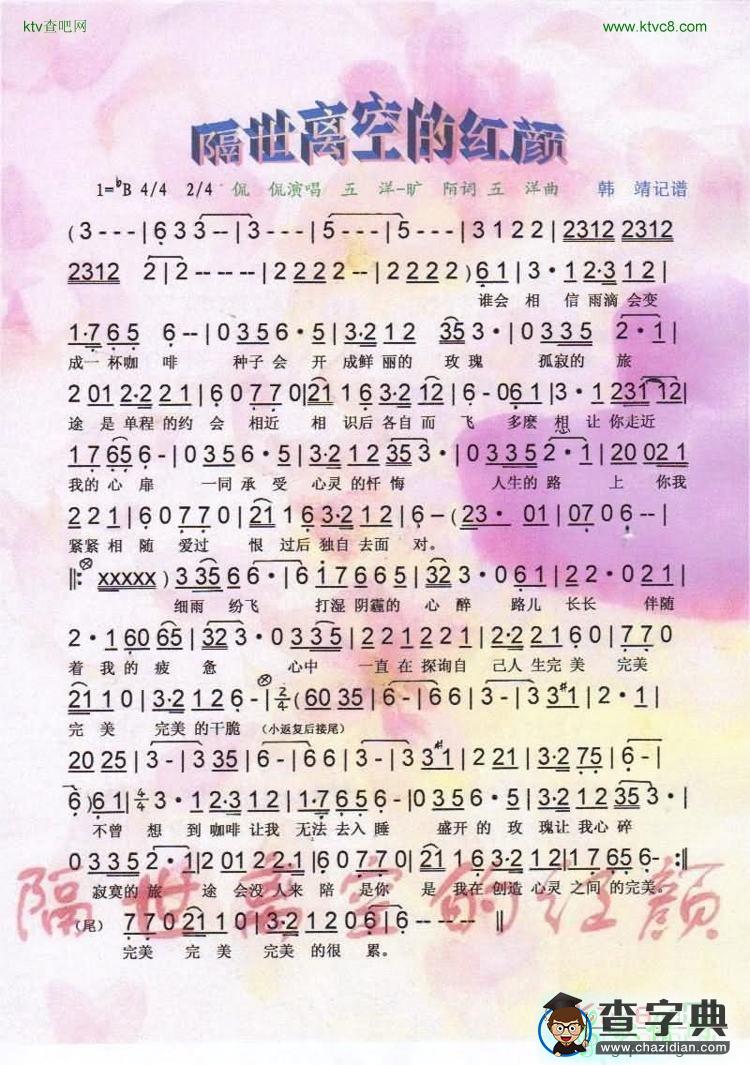 ktv查吧网
www.ktvc8.com
隔世离空的红颜
1=♭B 4/4 2/4 侃 侃演唱 五 洋-旷 陌词 五 洋曲 韩 靖记谱
(3 - - - | 6 3 3 - - | 3 - - - | 5 - - - | 5 - - - | 3 1 2 2 | 2312 2312
2312 2 | 2 - - - - | 2 2 2 2 - - | 2 2 2 2 ) 6 1 | 3 · 1 2·3 1 2 |
谁会 相 信 雨滴 会变
1·7 6 5 6 - - | 0 3 5 6 · 5 | 3·2 1 2 35 3 · | 0 3 3 5 2 · 1 |
成一 杯咖 啡 种子 会 开 成鲜 丽 的 玫 瑰 孤寂 的 旅
2 01 2·2 2 1 | 6 0 7 7 0 | 21 1 6 3·2 1 2 | 6 - 0 6 1 | 3 · 1 231 12 |
途 是 单程 的约 会 相近 相 识后 各自 而 飞 多麽 想 让 你走近
1 7 6 5 6 - | 0 3 5 6 · 5 | 3·2 1 2 35 3 · | 0 3 3 5 2 · 1 | 2 0 02 1 |
我的 心 扉 一同 承 受 心灵 的 忏 悔 人生 的 路 上 你我
2 2 1 | 6 0 7 7 0 | 21 1 6 3·2 1 2 | 6 - (23 · 01 | 07 0 6 - - |
紧紧 相 随 爱过 恨 过后 独自 去面 对。
‖: ⊗ XXXXX ) 3 35 6 6 · | 6 1 7 6 6 5 | 32 3 · 0 6 1 | 2 2 · 0 2 1 |
细雨 纷飞 打湿 阴霾的 心 醉 路儿 长长 伴随
2 · 1 60 65 | 32 3 · 0 3 3 5 | 2 2 1 2 2 1 | 2·2 2 1 6 0 | 7 7 0
着 我 的 疲 惫 心中 一直 在 探询自 己人 生完 美 完美
21 1 0 | 3·2 1 2 6 - | ⊗ 2/4 (60 35 | 6 - | 6 - | 3 - | 3 3 #1 | 2 · 1 |
完 美 完美 的干脆 (小返复后接尾)
20 25 | 3 - | 3 35 | 6 - | 6 6 | 5 - | 3 - | 3 3 #1 | 2 21 | 3·2 75 | 6 - |
6 ) 6 1 | 4/4 3 · 1 2·3 1 2 | 1·7 6 5 6 - | 0 3 5 6 · 5 | 3·2 1 2 35 3 · |
不曾 想 到 咖啡 让我 无法 去入 睡 盛开 的 玫 瑰让 我心 碎
0 3 3 5 2 · 1 | 2 01 2 2·1 | 6 · 0 7 7 0 | 21 1 6 3·2 1 2 | 1 7 65 6 - :‖
寂寞 的 旅 途 会没 人来 陪 是你 是 我在 创造 心灵 之间 的完美。
隔世离空的红颜
(尾) 7 7 0 21 1 0 | 3·2 1 2 0 6 | 6 - - - - ‖
完美 完 美 完美 的 很 累。
查字典
www.chazidian.com